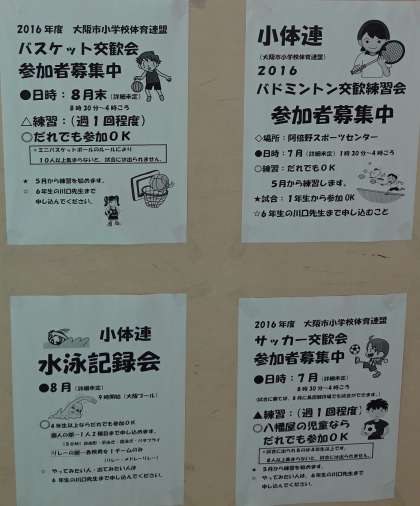 2016年度 大阪市小学校体育連盟
バスケット交歓会
参加者募集中
●日時：８月末（詳細未定）
８時３０分～４時ごろ
△練習：（週１回程度）
○だれでも参加ＯＫ
＊ミニバスケットボールのルールにより
１０人以上集まらないと、試合には出られません。
★ ５月から練習を始めます。
☆ ６年生の川口先生まで
申し込んでください。
小体連
（大阪市小学校体育連盟）
２０１６
バドミントン交歓練習会
参加者募集中
◇場所：阿倍野スポーツセンター
●日時：７月（詳細未定）１時３０分～４時ごろ
○練習：だれでもＯＫ
５月から練習します。
★試合：１年生から参加ＯＫ
☆６年生の川口先生まで申し込むこと
小体連
水泳記録会
●８月（詳細未定）
９時開始（大阪プール）
６年生ならだれでも参加ＯＫ
個人の部－１人２種目まで申し込めます。
リレーの部－各校男女１チームのみ
（リレー・メドレーリレー）
☆ やってみたい・出てみたい人は
６年生の川口先生まで申し込んでください。
2016年度 大阪市小学校体育連盟
サッカー交歓会
参加者募集中
●日時：７月（詳細未定）
８時３０分～４時ごろ
▲練習：（週１回程度）
○八幡屋の児童なら
だれでも参加ＯＫ
８人以上集まらないと、試合には出られません。
★ ５月から練習を始めます。
☆ やってみたい人は、６年生の川口先生まで
申し込んでください。